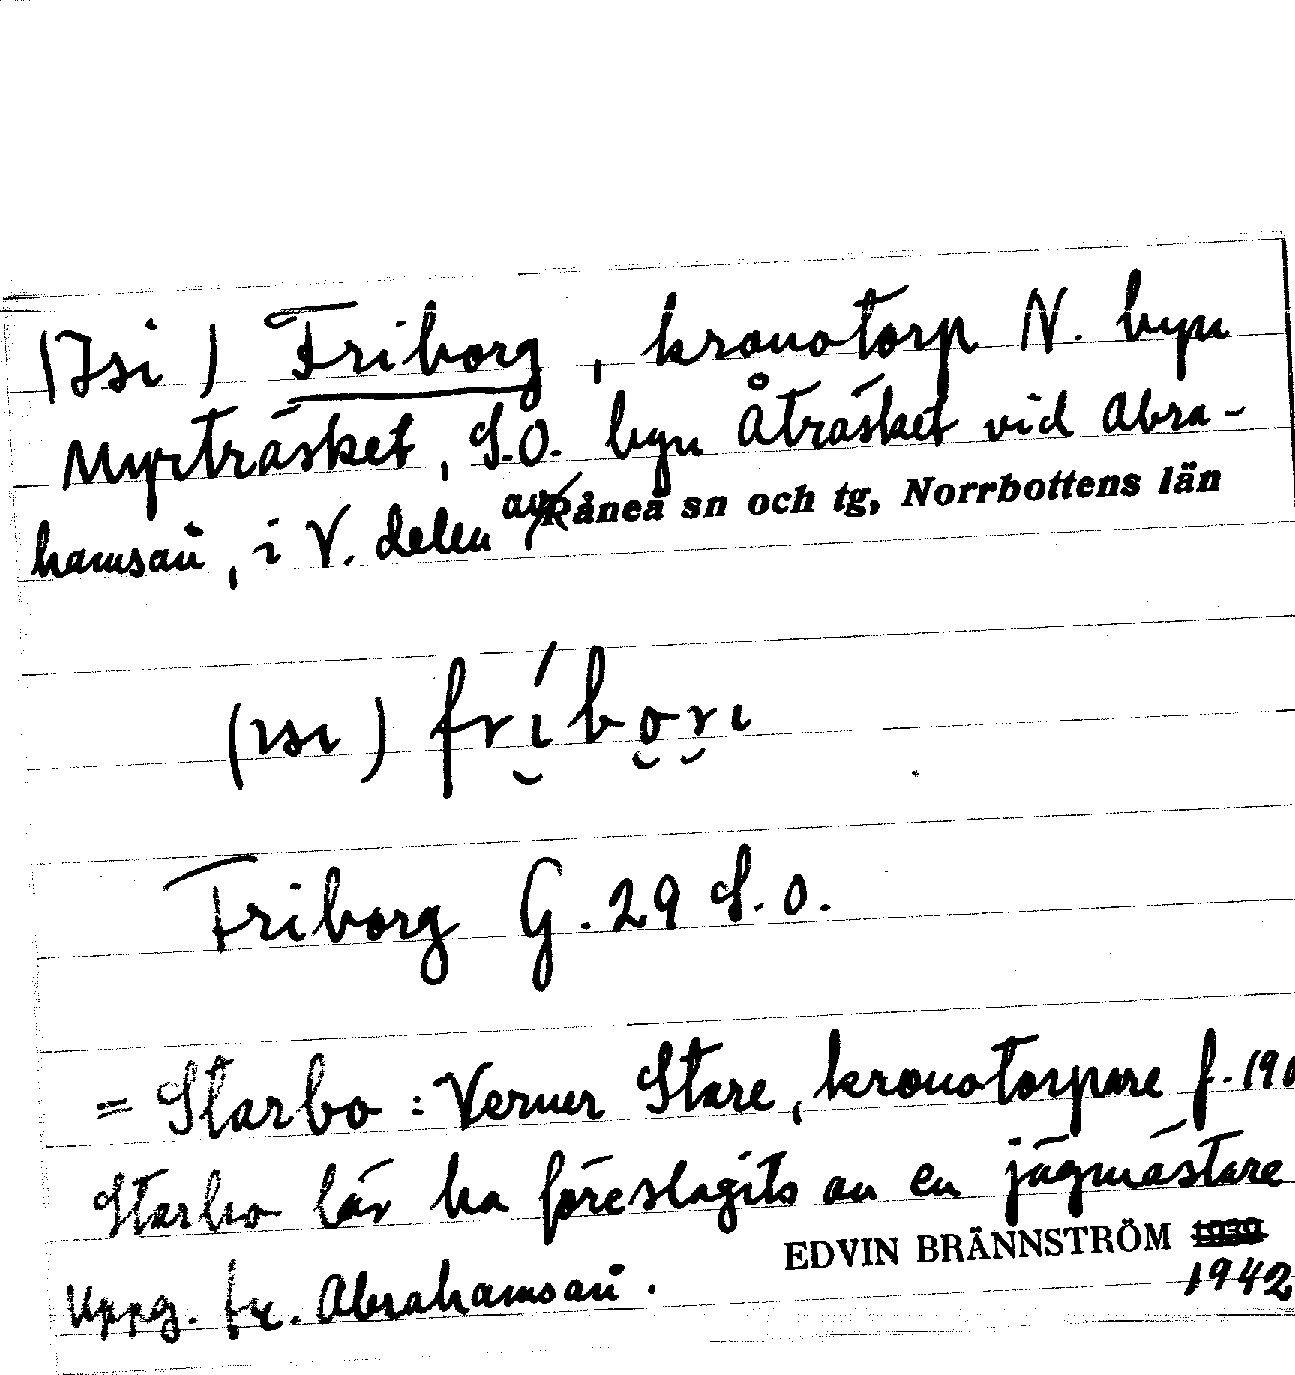 (Isi) Friborg, kronotorp N. byn
Myrträsket, S.O. byn Åträsket vid Abra-
hamsån, i V. delen av Råneå sn och tg, Norrbottens län
(ısı) frı́bo̯r̯ı
Friborg G. 29 S.O.
= Starbo: Verner Stare, kronotorpare f. 190
Starbo lär ha föreslagits av en jägmästare
Uppg. fr. Abrahamsån.
EDVIN BRÄNNSTRÖM 1939
1942